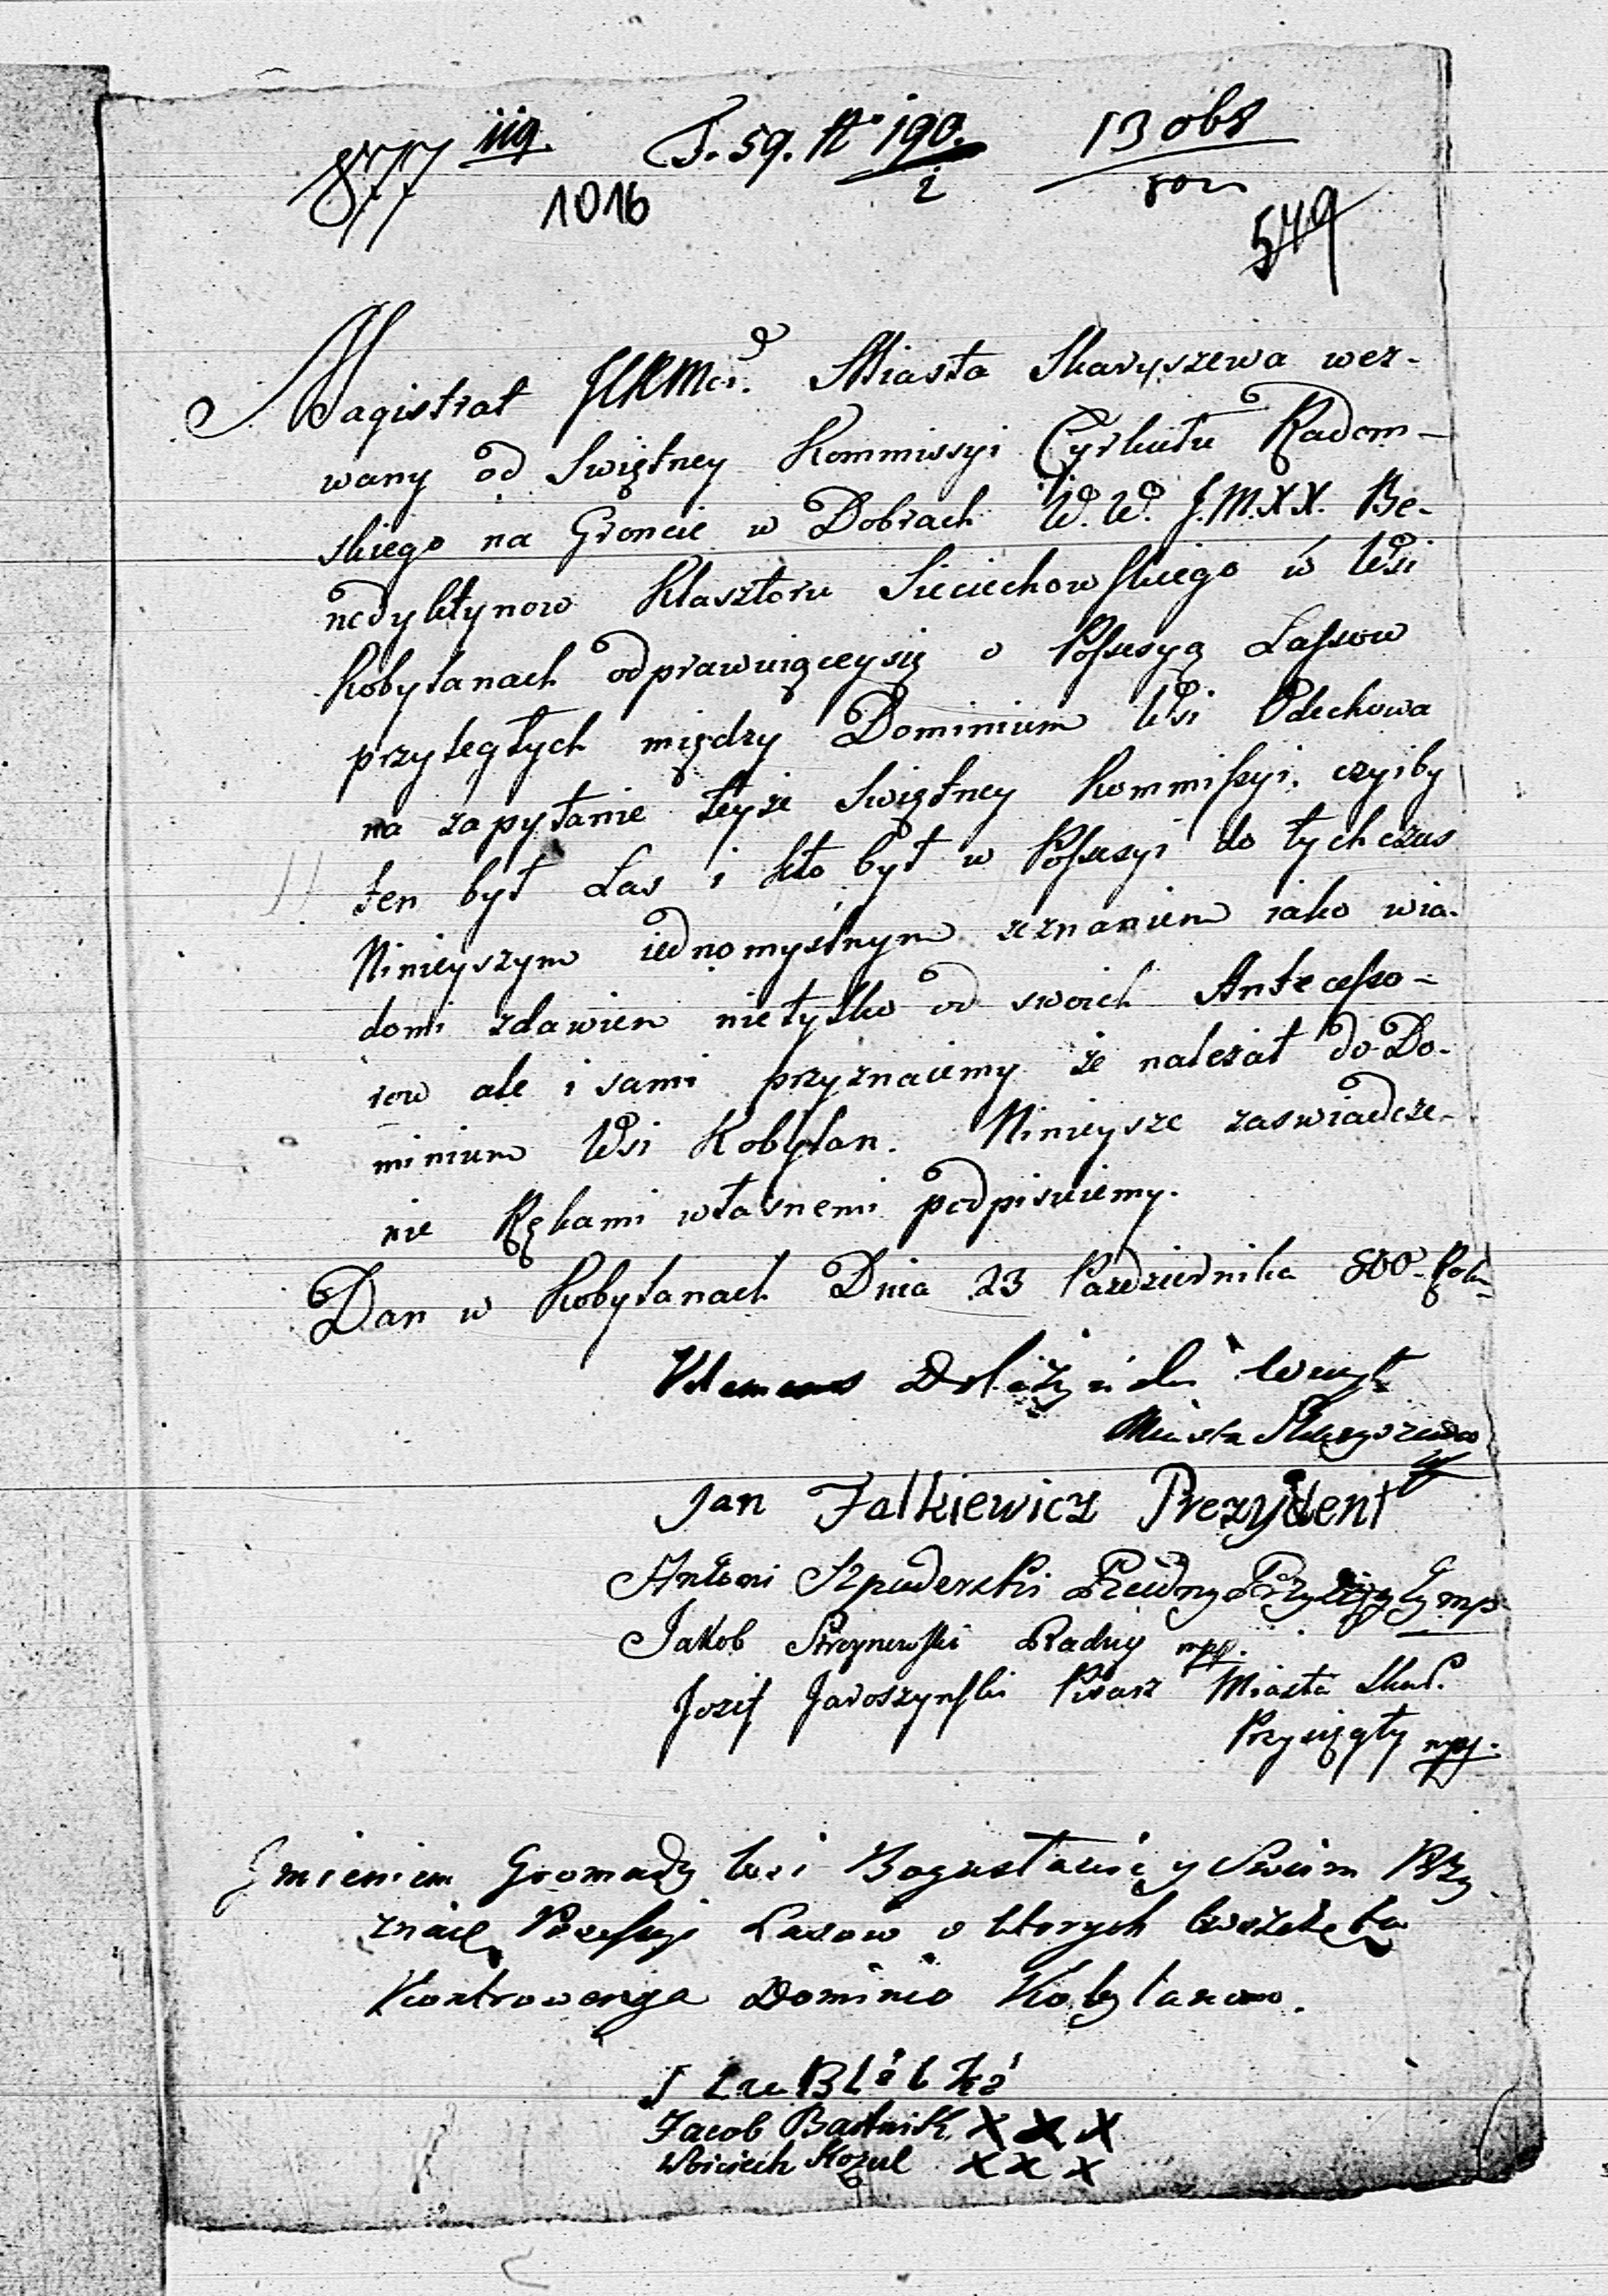 877 119. T. 59. No 190. 13 obs
1016 2 802
549
Magistrat JCKMci. Miasta Skaryszewa wez-
wany od Swiętney Kommissyi Cyrkułu Radom-
skiego na Groncie w Dobrach W. W. J.M.XX. Be-
nedyktynow Klasztoru Sieciechowskiego w Wsi
Kobylanach odprawuiąceysię o Possesyą Lassow
przyległych między Dominium Wsi Odechowa
na zapytanie teyże Swiętney Kommissyi, czyiby
ten był Las i kto był w Possesyi do tych czas
Ninieyszym iednomyslnym zeznaniem iako wia-
domi zdawien nietylko od swoich Antecesso-
row ale i sami przyznaiemy że należał do Do-
minium Wsi Kobylan. Ninieysze zaswiadcze-
nie Rękami własnemi podpisuiemy.
Dan w Kobylanach Dnia 23 Pazdziernika 800 Roku
Klemens Woyt
Miasta Skaryszewa
Jan Falkiewicz Prezydent
Antoni Szpuderski Radny Przysięgły mp
Jakob Radny mp.
Jozef Jaroszynski Pisarz Miasta Skar.
Przysięgły mp.
Jmieniem Gromady Wsi Bogusławic y Swoim Przy
znaię Possesyi Lasow o ktorych wszczęta
Kontrowersya Dominio Kobylanow.
Jacob Bartnik X X X
Woiciech Kozul X X X